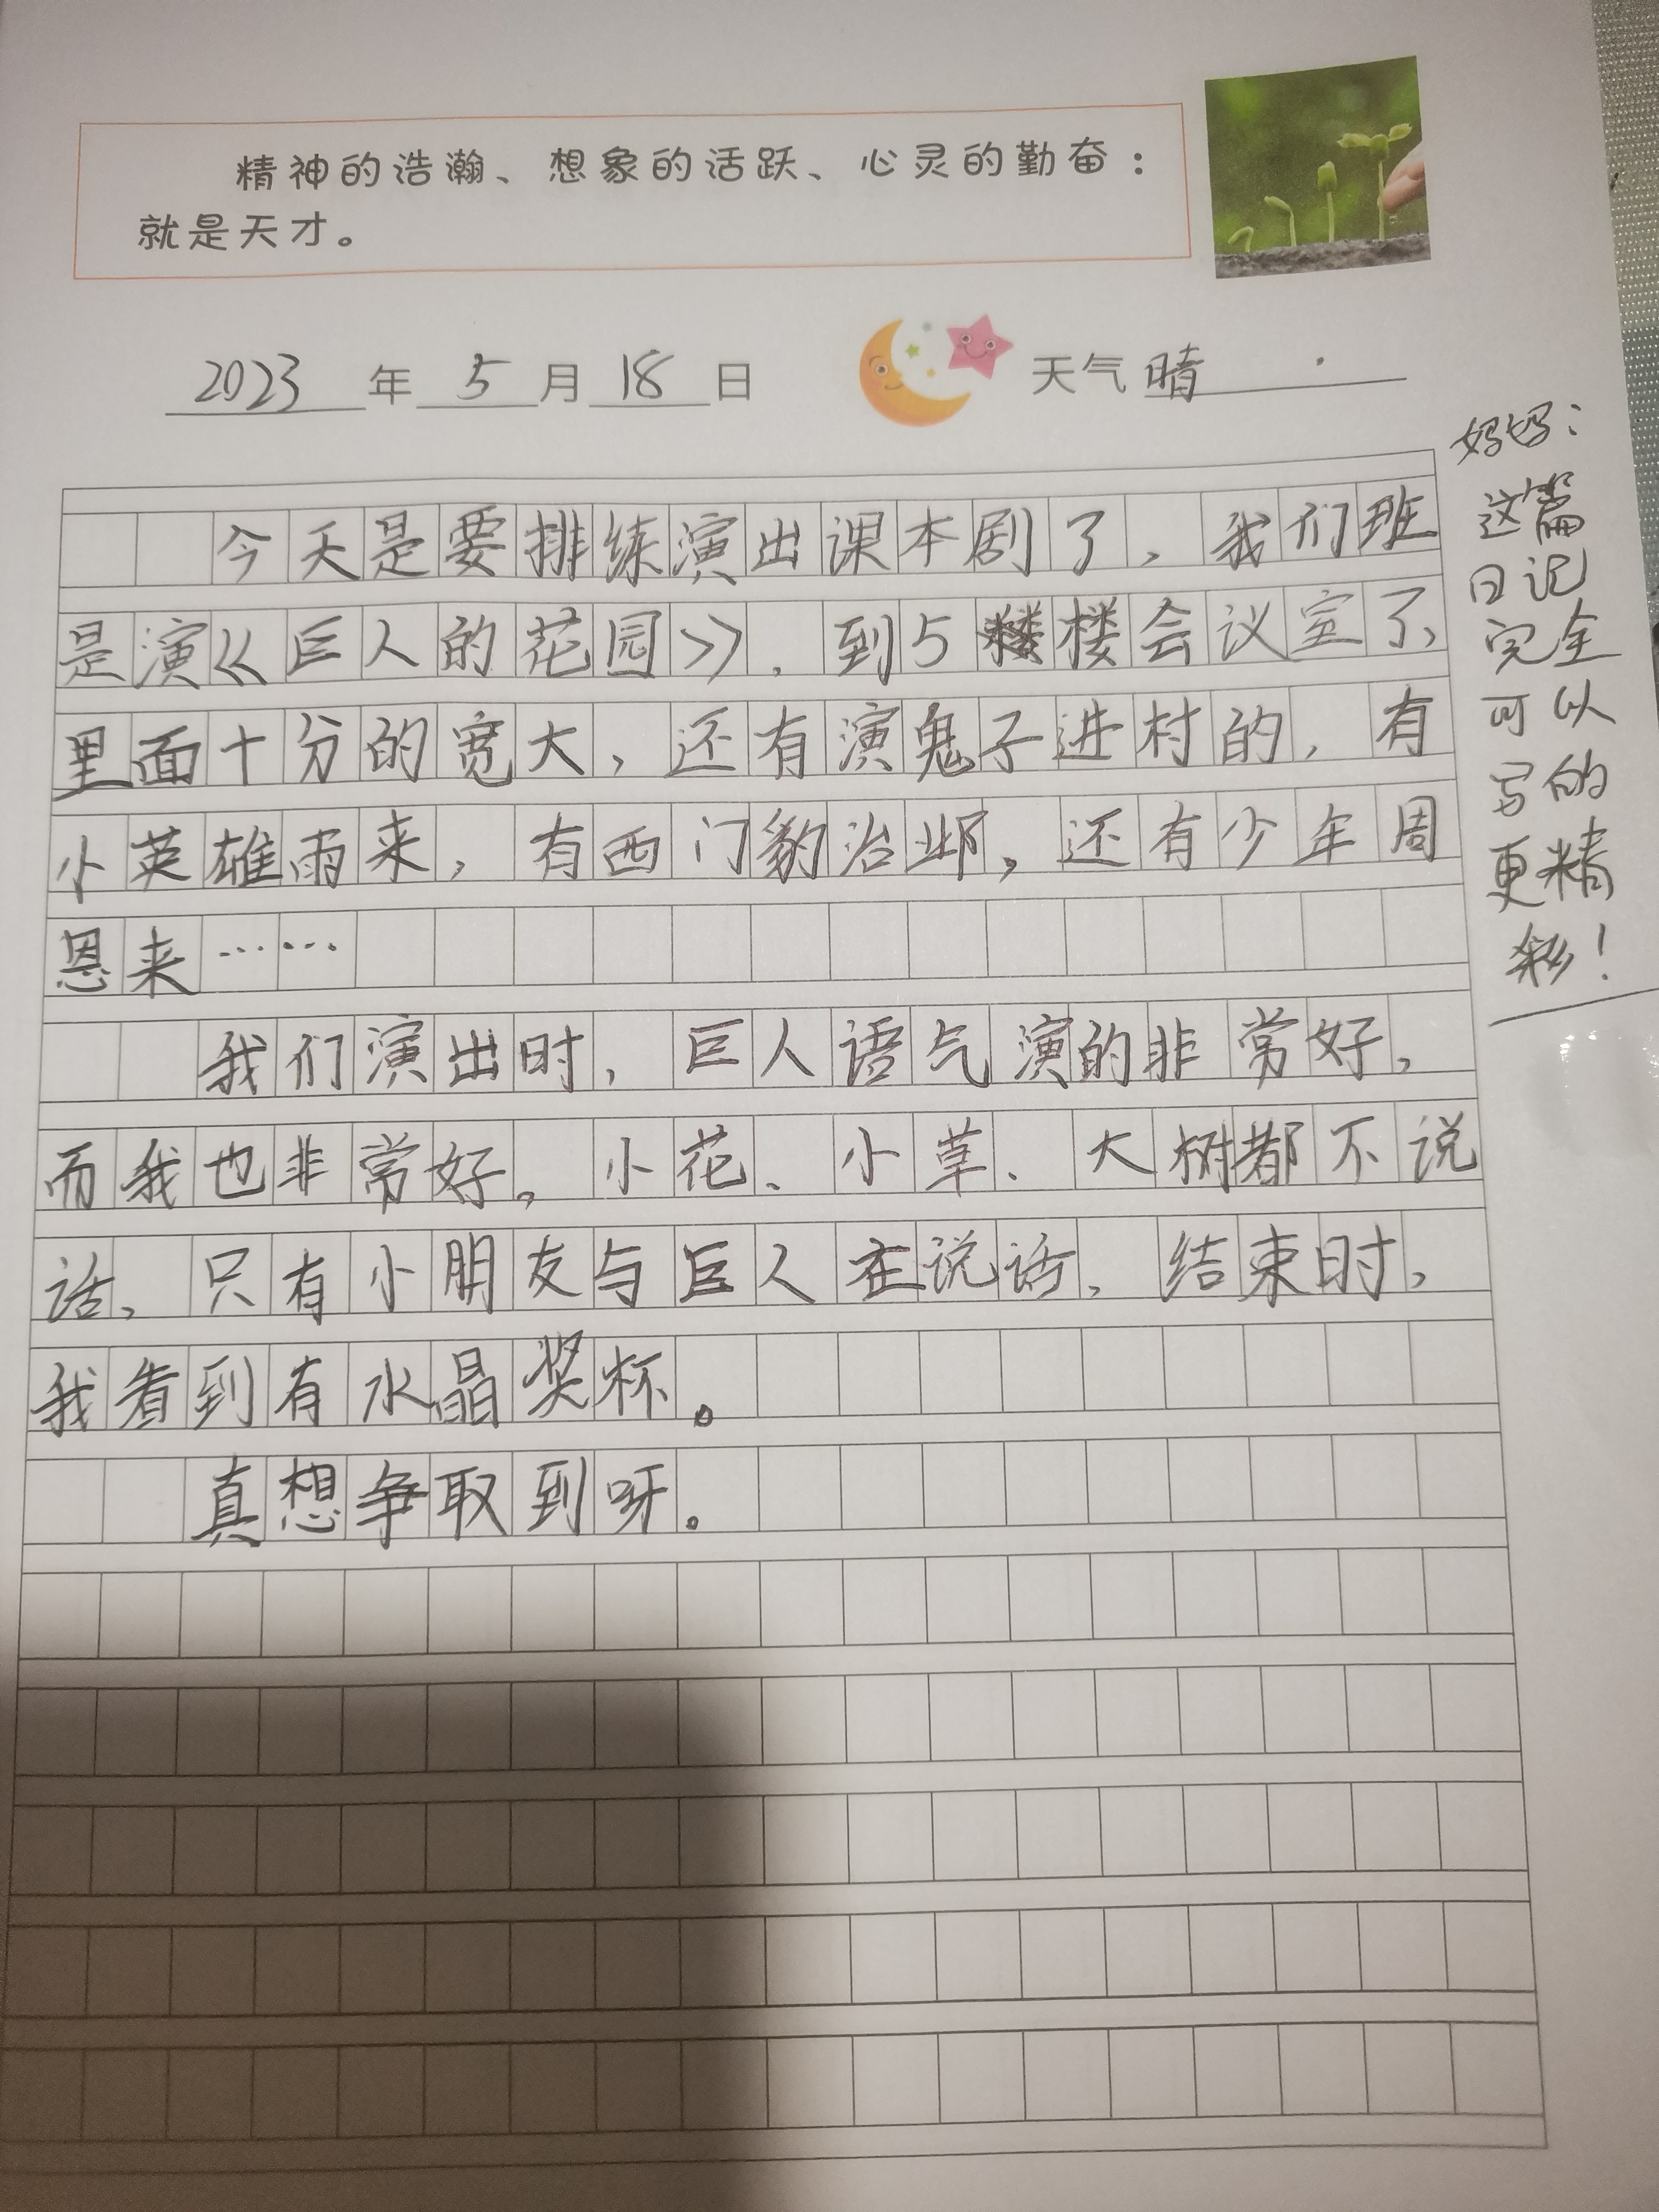 精神的浩瀚、想象的活跃、心灵的勤奋：
就是天才。
2023年5月18日 天气晴
今天是要排练演出课本剧了，我们班
是演《巨人的花园》，到5楼会议室了，
里面十分的宽大，还有演鬼子进村的，有
小英雄雨来，有西门豹治邺，还有少年周
恩来……
我们演出时，巨人语气演的非常好，
而我也非常好。小花、小草、大树都不说
话，只有小朋友与巨人在说话，结束时，
我看到有水晶奖杯。
真想争取到呀。
妈妈：
这篇
日记
完全
可以
写的
更精
彩！